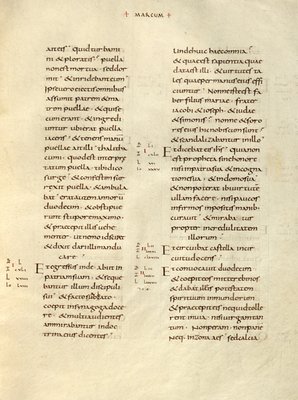 + MARCUM +
ait eis quid turbami
ni & ploratis? puella
non est mortua sed dor
mit & inridebant eum
ipse uero eiectis omnibus
assumit patrem & ma
trem puellae & qui secum
erant & ingredi
untur ubi erat puella
iacens & tenens manum
puellae ait illi thalitha
cumi quod est interpr&a
tum puella tibi dico
surge & confestim sur
rexit puella & ambula
bat erat autem annorū
duodecim & obstipue
runt stupore maximo
& praecepit illis uehe
menter ut nemo id sciret
& dixit dari illi mandu
care
Egressus inde abiit in
patriam suam & seque
bantur illum discipuli
sui & facto sabbato
coepit in synagoga doce
re & multi audientes
ammirabantur in doc
trina eius dicentes
Unde huic haec omnia
& quae est sapientia quae
data est illi & uirtutes ta
les quae per manus eius effi
ciuntur Nonne iste est fa
ber filius mariae frater
iacobi & ioseph & iudae
& simonis nonne & soro
res eius hic nobiscum sunt
& scandalizabantur in illo
Et dicebat eis ihs quia non
est propheta sine honore
nisi in patria sua & in cogna
tione sua & in domo sua
& non poterat ibi uirtutē
ullam facere nisi paucos
infirmos impositis manib:
curauit & mirabatur
propter incredulitatem
illorum
Et circuibat castella in cir
cuitu docens
Et conuocauit duodecim
& coepit eos mittere binos
& dabat illis potestatem
spirituum inmundorum
& praecepit eis ne quid tolle
rent in uia nisi uirgam tan
tum Non peram non panē
neq: in zona aes sed calcia